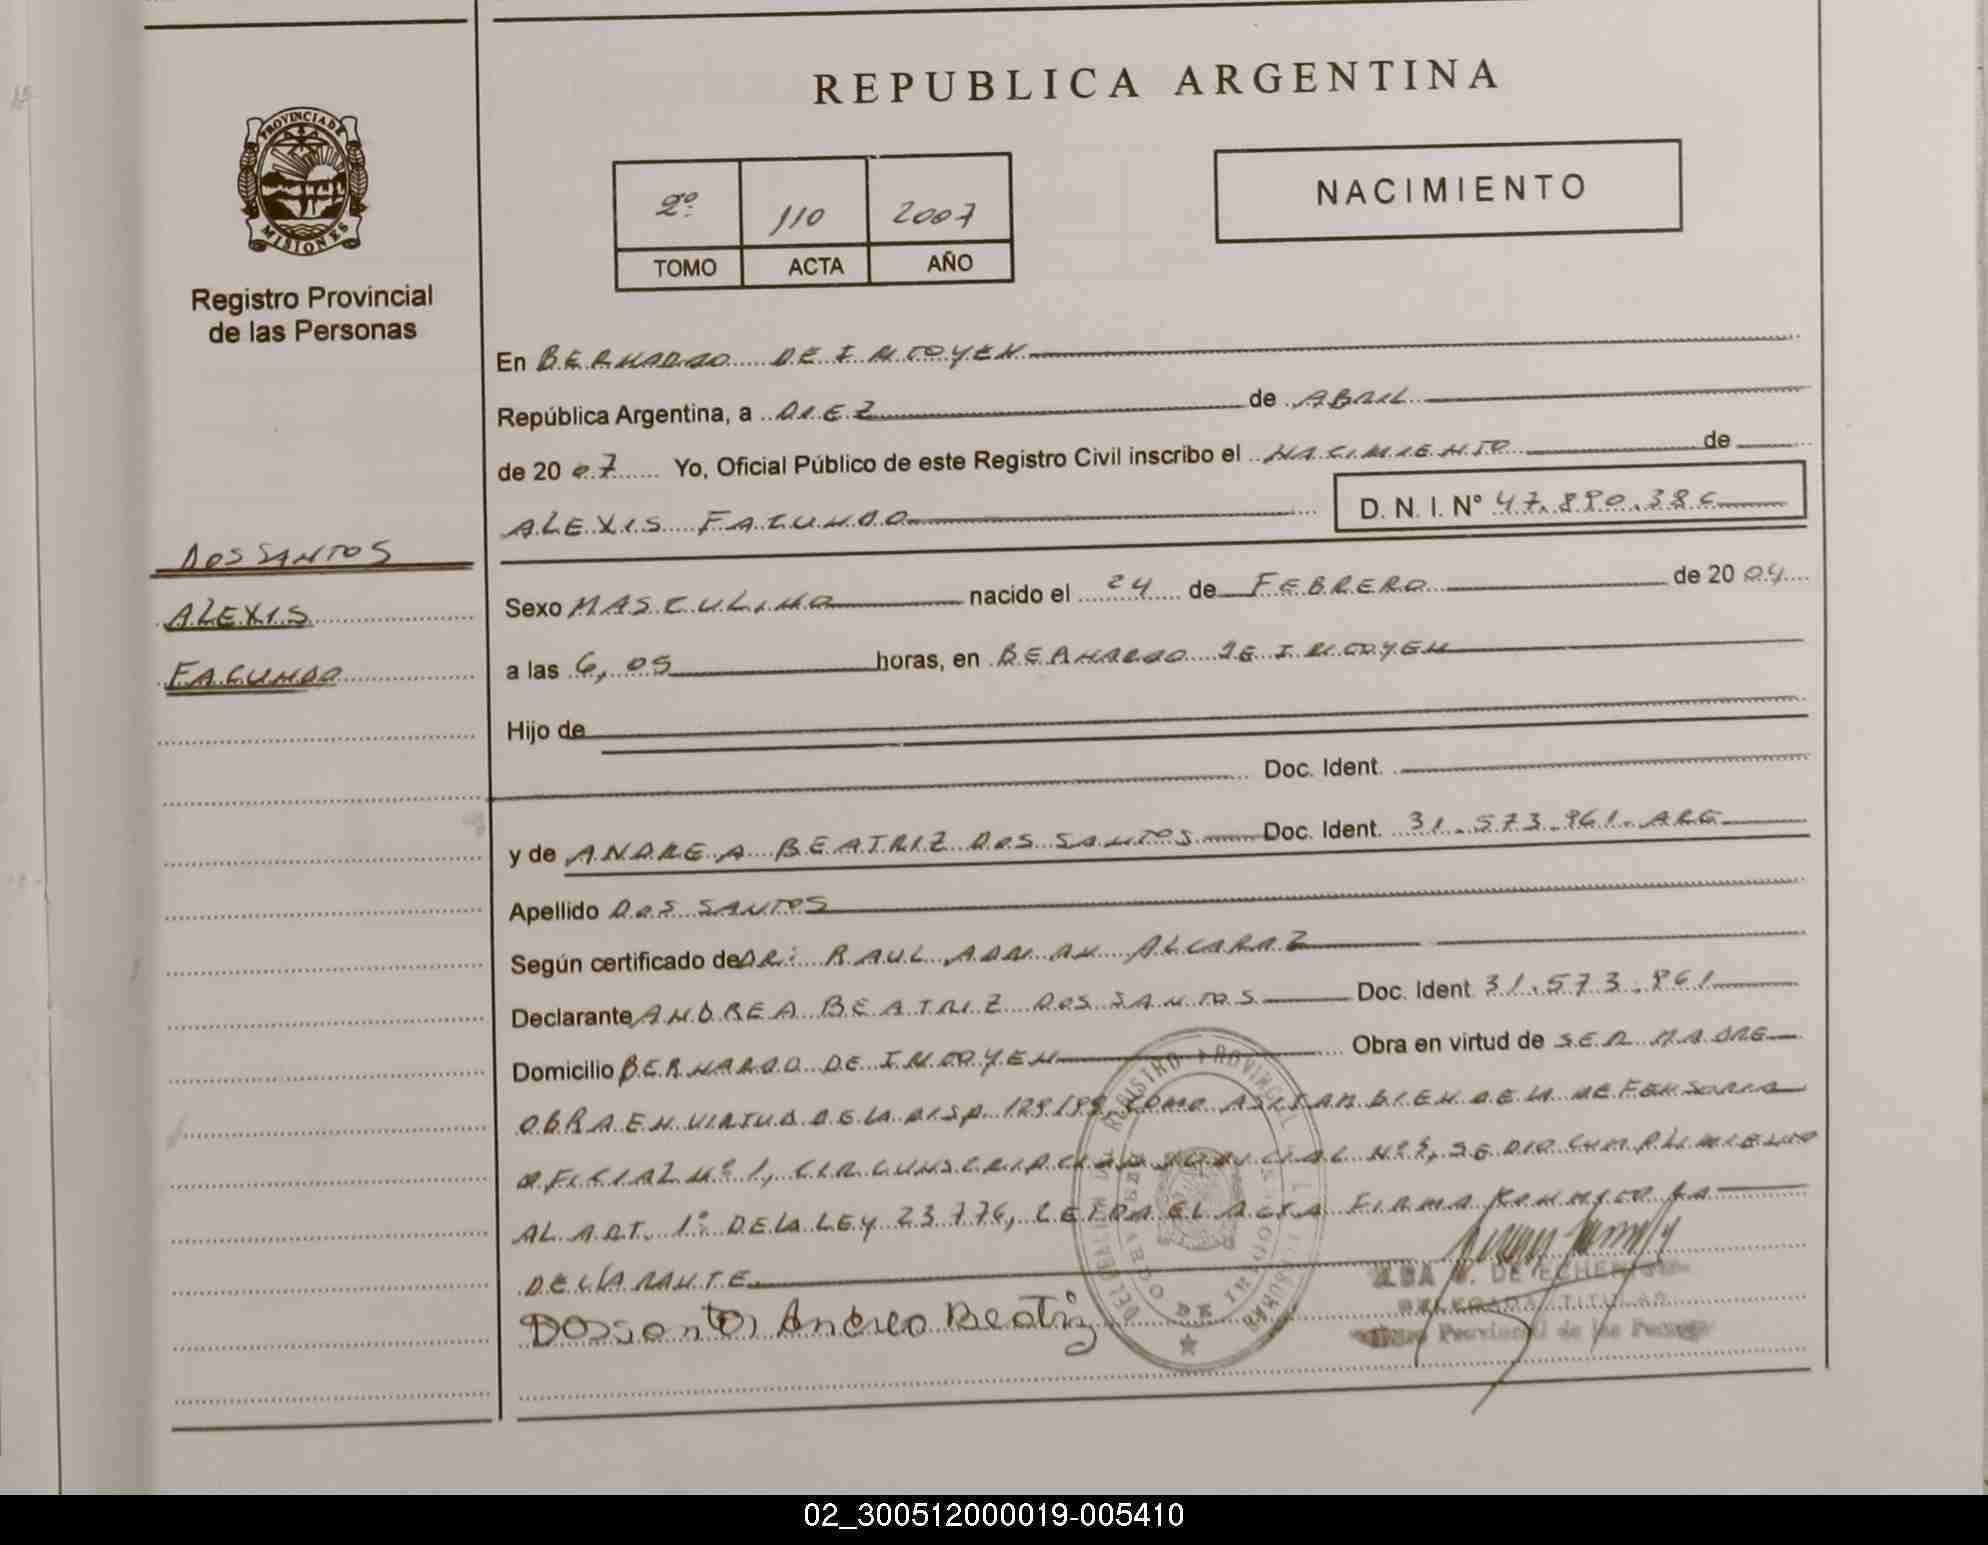 REPUBLICA ARGENTINA
PROVINCIA DE
MISIONES
Registro Provincial
de las Personas
2º 110 2007
TOMO ACTA AÑO
NACIMIENTO
En BERNARDO DE IRIGOYEN
República Argentina, a DIEZ de ABRIL
de 2007 Yo, Oficial Público de este Registro Civil inscribo el NACIMIENTO de
ALEXIS FACUNDO D. N. I. N° 47.890.386
DOS SANTOS
ALEXIS
FACUNDO
Sexo MASCULINO nacido el 24 de FEBRERO de 2004
a las 6,05 horas, en BERNARDO DE IRIGOYEN
Hijo de
Doc. Ident.
y de ANDREA BEATRIZ DOS SANTOS Doc. Ident. 31.573.961. ARG
Apellido DOS SANTOS
Según certificado de DR: RAUL ALCARAZ
Declarante ANDREA BEATRIZ DOS SANTOS Doc. Ident 31.573.961
Domicilio BERNARDO DE IRIGOYEN Obra en virtud de SER MADRE
OBRA EN VIRTUD DE LA DISP. 129/99 COMO ASI TAMBIEN DE LA DEFENSORIA
OFICIAL Nº 1, CIRCUNSCRIPCION JUDICIAL Nº SE DIO CUMPLIMIENTO
AL ART. 1º DE LA LEY 23.776, LEIDA EL ACTA FIRMA CONMIGO LA
DECLARANTE
Dossantos Andrea Beatriz
DE
DELEGADA TITULAR
Provincial de las Personas
02_300512000019-005410